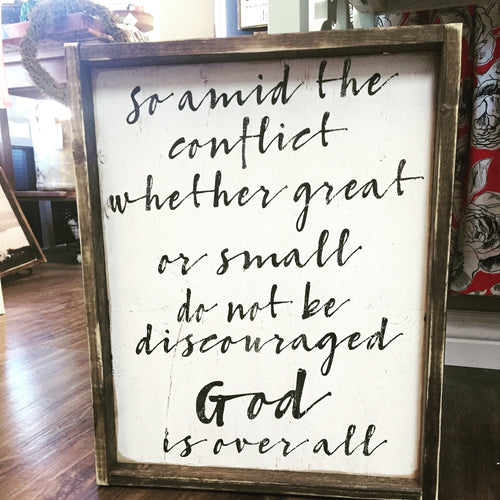 so amid the
conflict
whether great
or small
do not be
discouraged
God
is over all